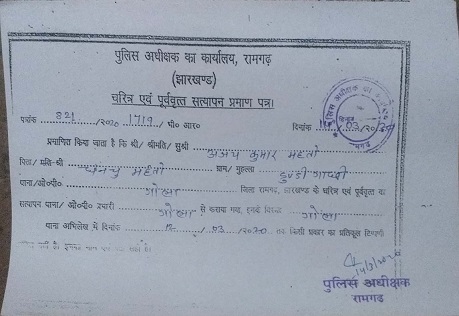 पुलिस अधीक्षक का कार्यालय, रामगढ़
(झारखण्ड)
चरित्र एवं पूर्ववृत्त सत्यापन प्रमाण पत्र।
पत्रांक 821 /2020 1719 / भी० आर० दिनांक /03 /20
प्रमाणित किया जाता है कि श्री/ श्रीमति/ सुश्री अजय कुमार महतो
पिता/ पति-श्री महतो ग्राम/ मुहल्ला
थाना/ओ०पी० गोला जिला रामगढ़, झारखण्ड के चरित्र एवं पूर्ववृत्त का
सत्यापन थाना/ ओ०पी० प्रभारी गोला से कराया गया, इनके विरुद्ध गोला
थाना अभिलेख में दिनांक 12 / 03 /2020 तक किसी प्रकार का प्रतिकूल टिप्पणी
पुलिस अधीक्षक
रामगढ़